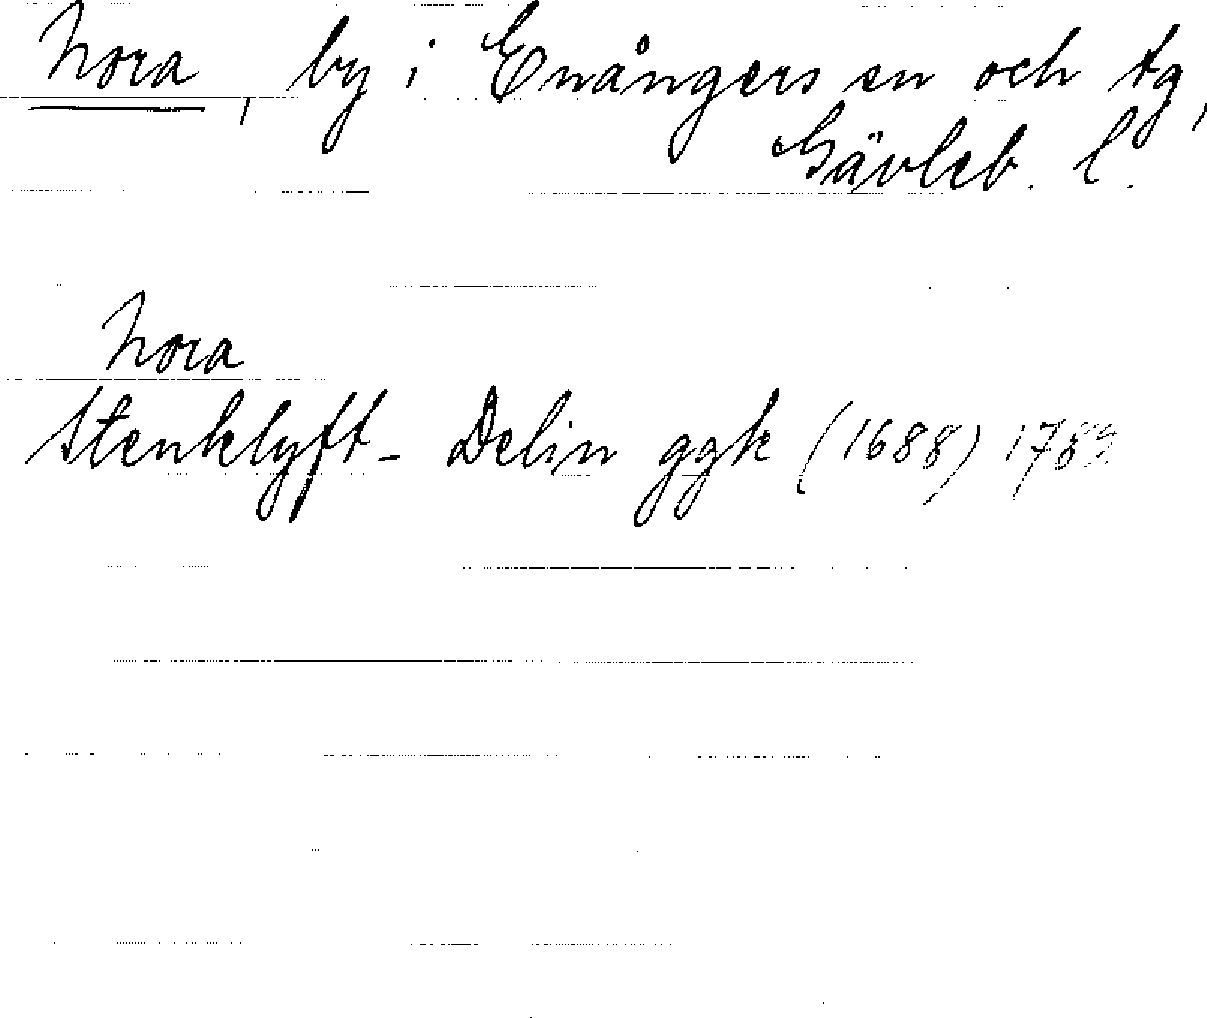 Nora, by i Enångers sn och tg,
Gävleb. l.
Nora
Stenklyft- Delin ggk (1688) 1789